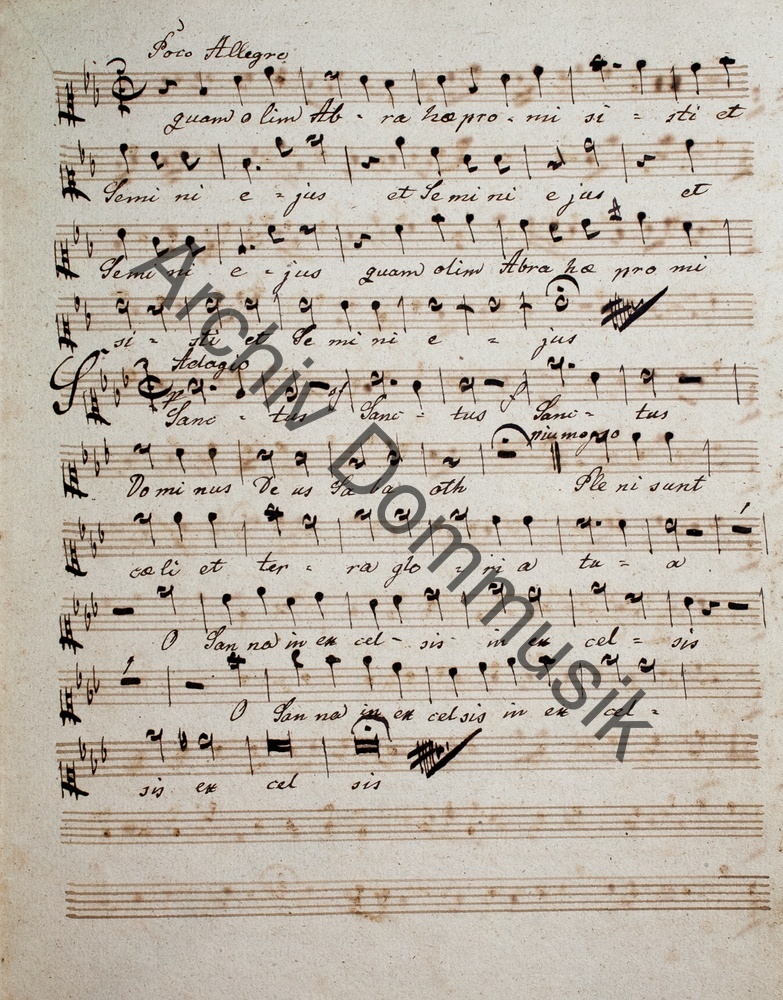 Poco Allegro
quam olim Ab - ra hæ pro - mi si = sti et
Semi ni e = jus et Semi ni ejus et
Semi ni e = jus quam olim Abra hæ pro mi
si = sti et Se mi ni e = jus
Adagio
p sf f
Sanc = tus Sanc = tus Sanc = tus
piu mosso
Do mi nus De us Sa ba oth Ple ni sunt
cæli et ter = ra glo = ri a tu = a
O San na in ex cel = sis in ex cel = sis
O San na in ex celsis in ex cel =
sis ex cel sis
Archiv Dommusik